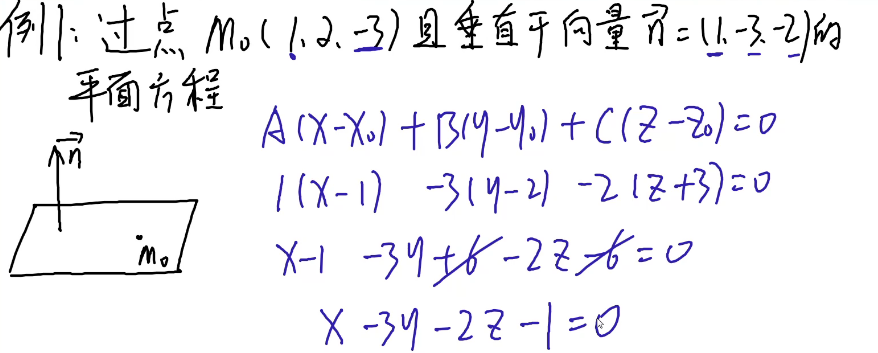 例1: 过点 M₀(1,2,-3)且垂直于向量 n⃗=(1,-3,-2)的
平面方程
A(x-x₀)+B(y-y₀)+C(z-z₀)=0
1(x-1) -3(y-2) -2(z+3)=0
x-1 -3y+6-2z-6=0
x-3y-2z-1=0
n⃗
M₀